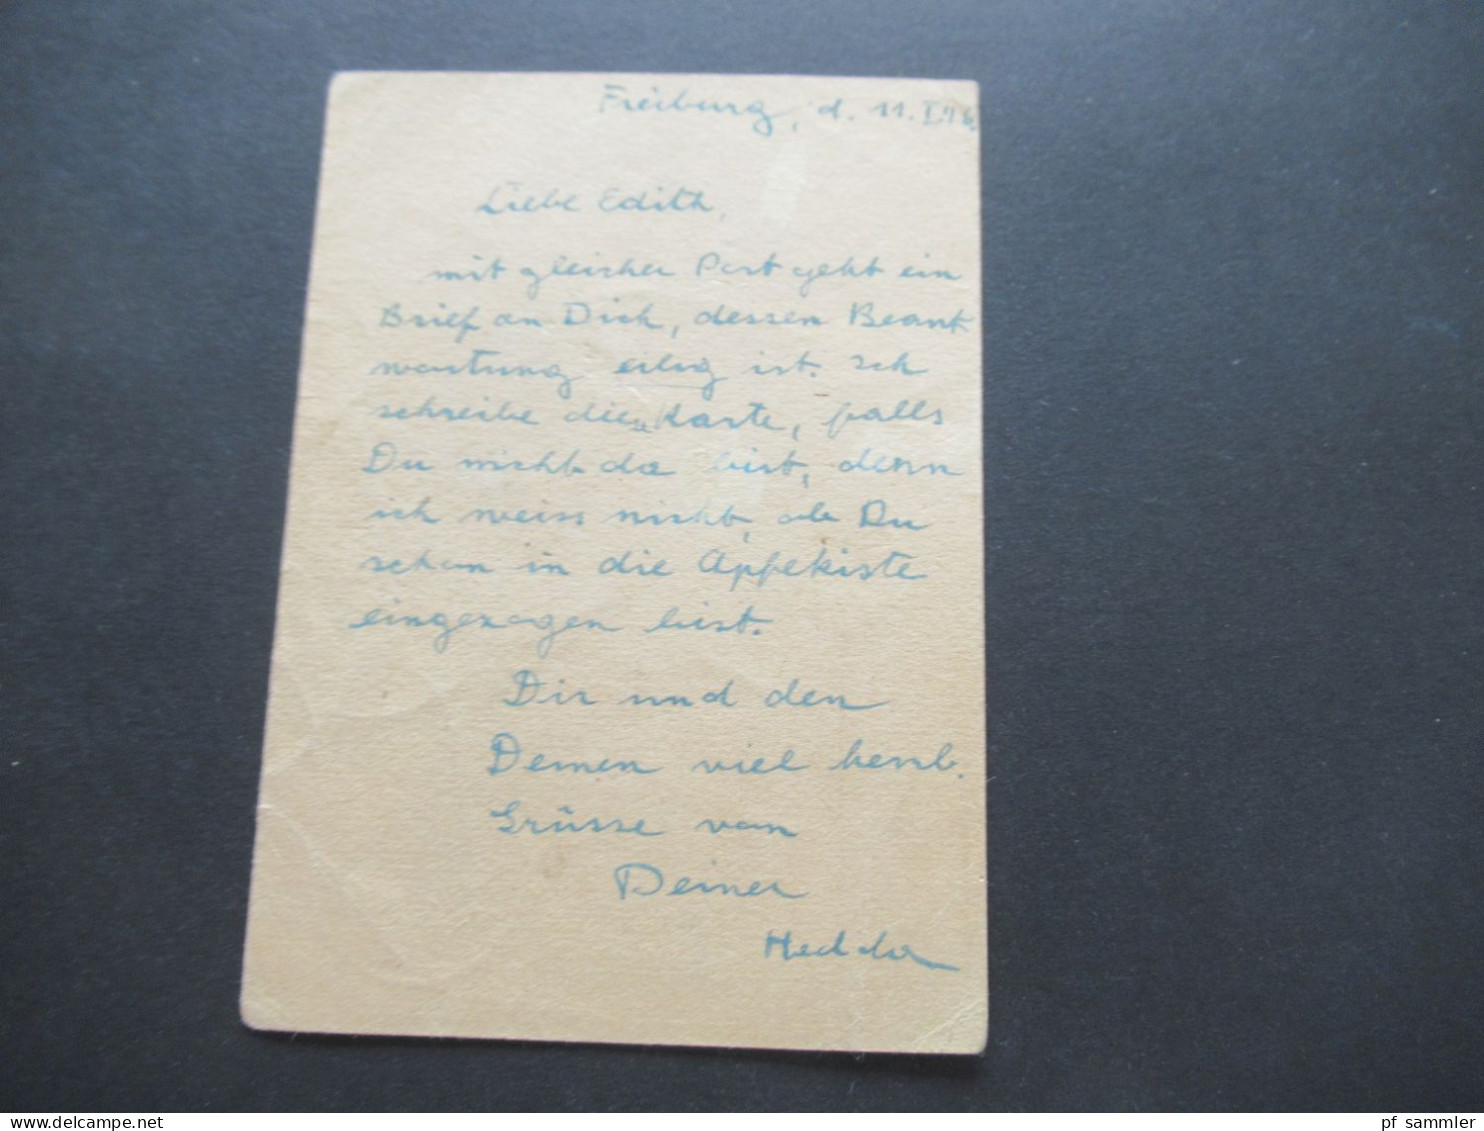 Freiburg, d. 11. I. 46.
Liebe Edith,
mit gleicher Post geht ein
Brief an Dich, dessen Beant
wortung eilig ist. Ich
schreibe diese Karte, falls
Du nicht da bist, denn
ich weiss nicht, ob Du
schon in die Apfekiste
eingezogen bist.
Dir und den
Deinen viel herzl.
Grüsse von
Deiner
Hedda
pf_sammler
delcampe.net